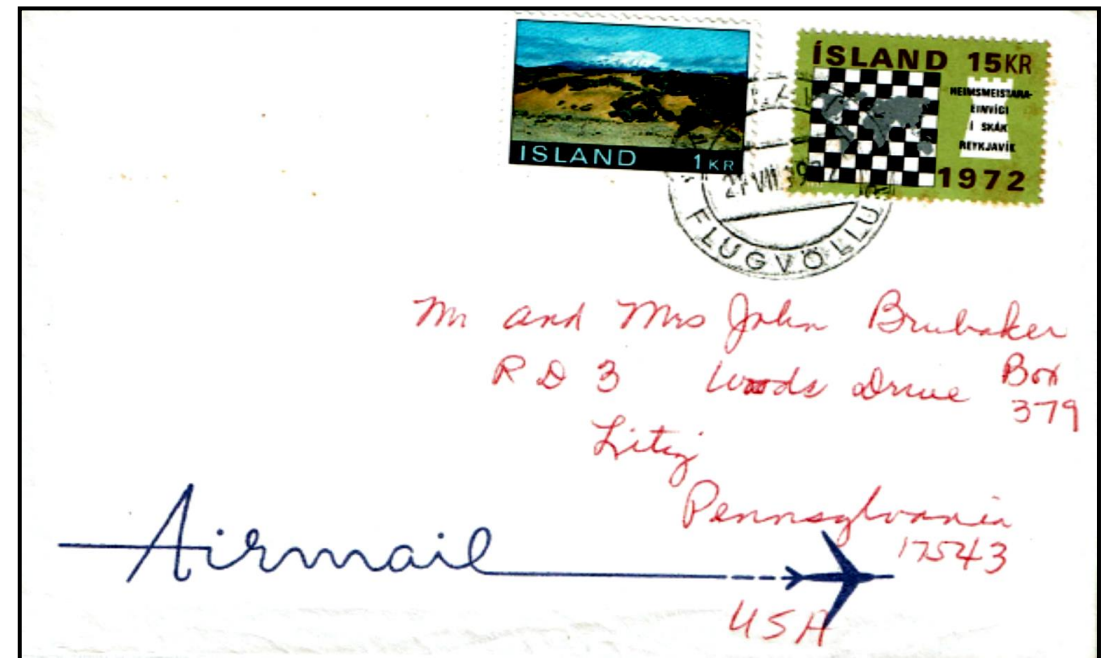 ÍSLAND 1KR
ÍSLAND 15KR
HEIMSMEISTARA-
EINVÍGI
Í SKÁK
REYKJAVÍK
1972
FLUGVÖLLU
Mr and Mrs John Brubaker
RD 3 Woods Drive Box
379
Litiz
Pennsylvania
17543
USA
Airmail